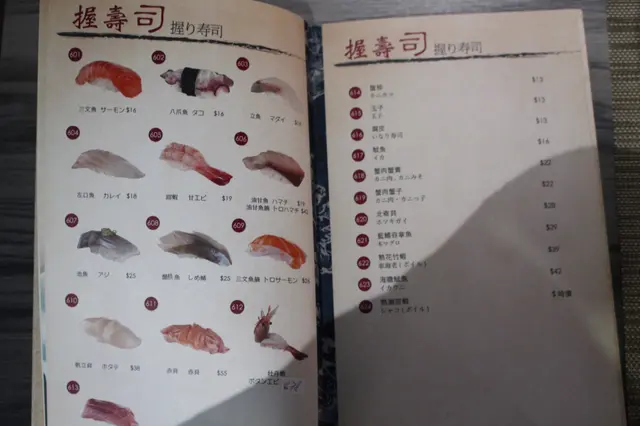 握壽司 握り寿司
601 602 603
三文魚 サーモン $16
八爪魚 タコ $16
立魚 マダイ
604 605 606
左口魚 カレイ $18
甜蝦 甘エビ $19
油甘魚 ハマチ $19
油甘魚腩 トロハマチ
607 608 609
池魚 アジ $25
しめ鯖 $25
三文魚腩 トロサーモン
610 611 612
帆立貝 ホタテ $38
赤貝 赤貝 $55
牡丹蝦
ボタンエビ
613
握壽司 握り寿司
614 蟹柳 $13
カニカマ
615 玉子 $13
玉子
616 腐皮 $15
いなり寿司
617 魷魚 $16
イカ
618 蟹肉蟹羔 $22
カニ肉、カニみそ
619 蟹肉蟹子 $22
カニ肉・カニっ子
620 北寄貝 $28
ホッキガイ
621 藍鰭吞拿魚 $39
本マグロ
622 熟花竹蝦 $39
車海老(ボイル)
623 海膽魷魚 $42
イカウニ
熟瀨尿蝦 $ 時價
シャコ(ボイル)